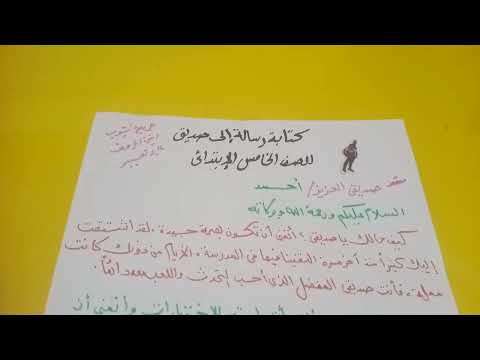 كتابة رسالة إلى صديقى
للصف الخامس الإبتدائى
صديقى العزيز/ أحمد
السلام عليكم ورحمة الله وبركاته
كيف حالك يا صديقى، أتمنى أن تكون بصحة جيدة، لقد اشتقت
إليك كثيراً منذ آخر مرة التقينا فيها فى المدرسة، الأيام من دونك كانت
مملة، فأنت صديقى المفضل الذى أحب التحدث واللعب معه دائماً.
الاختبارات وأتمنى أن